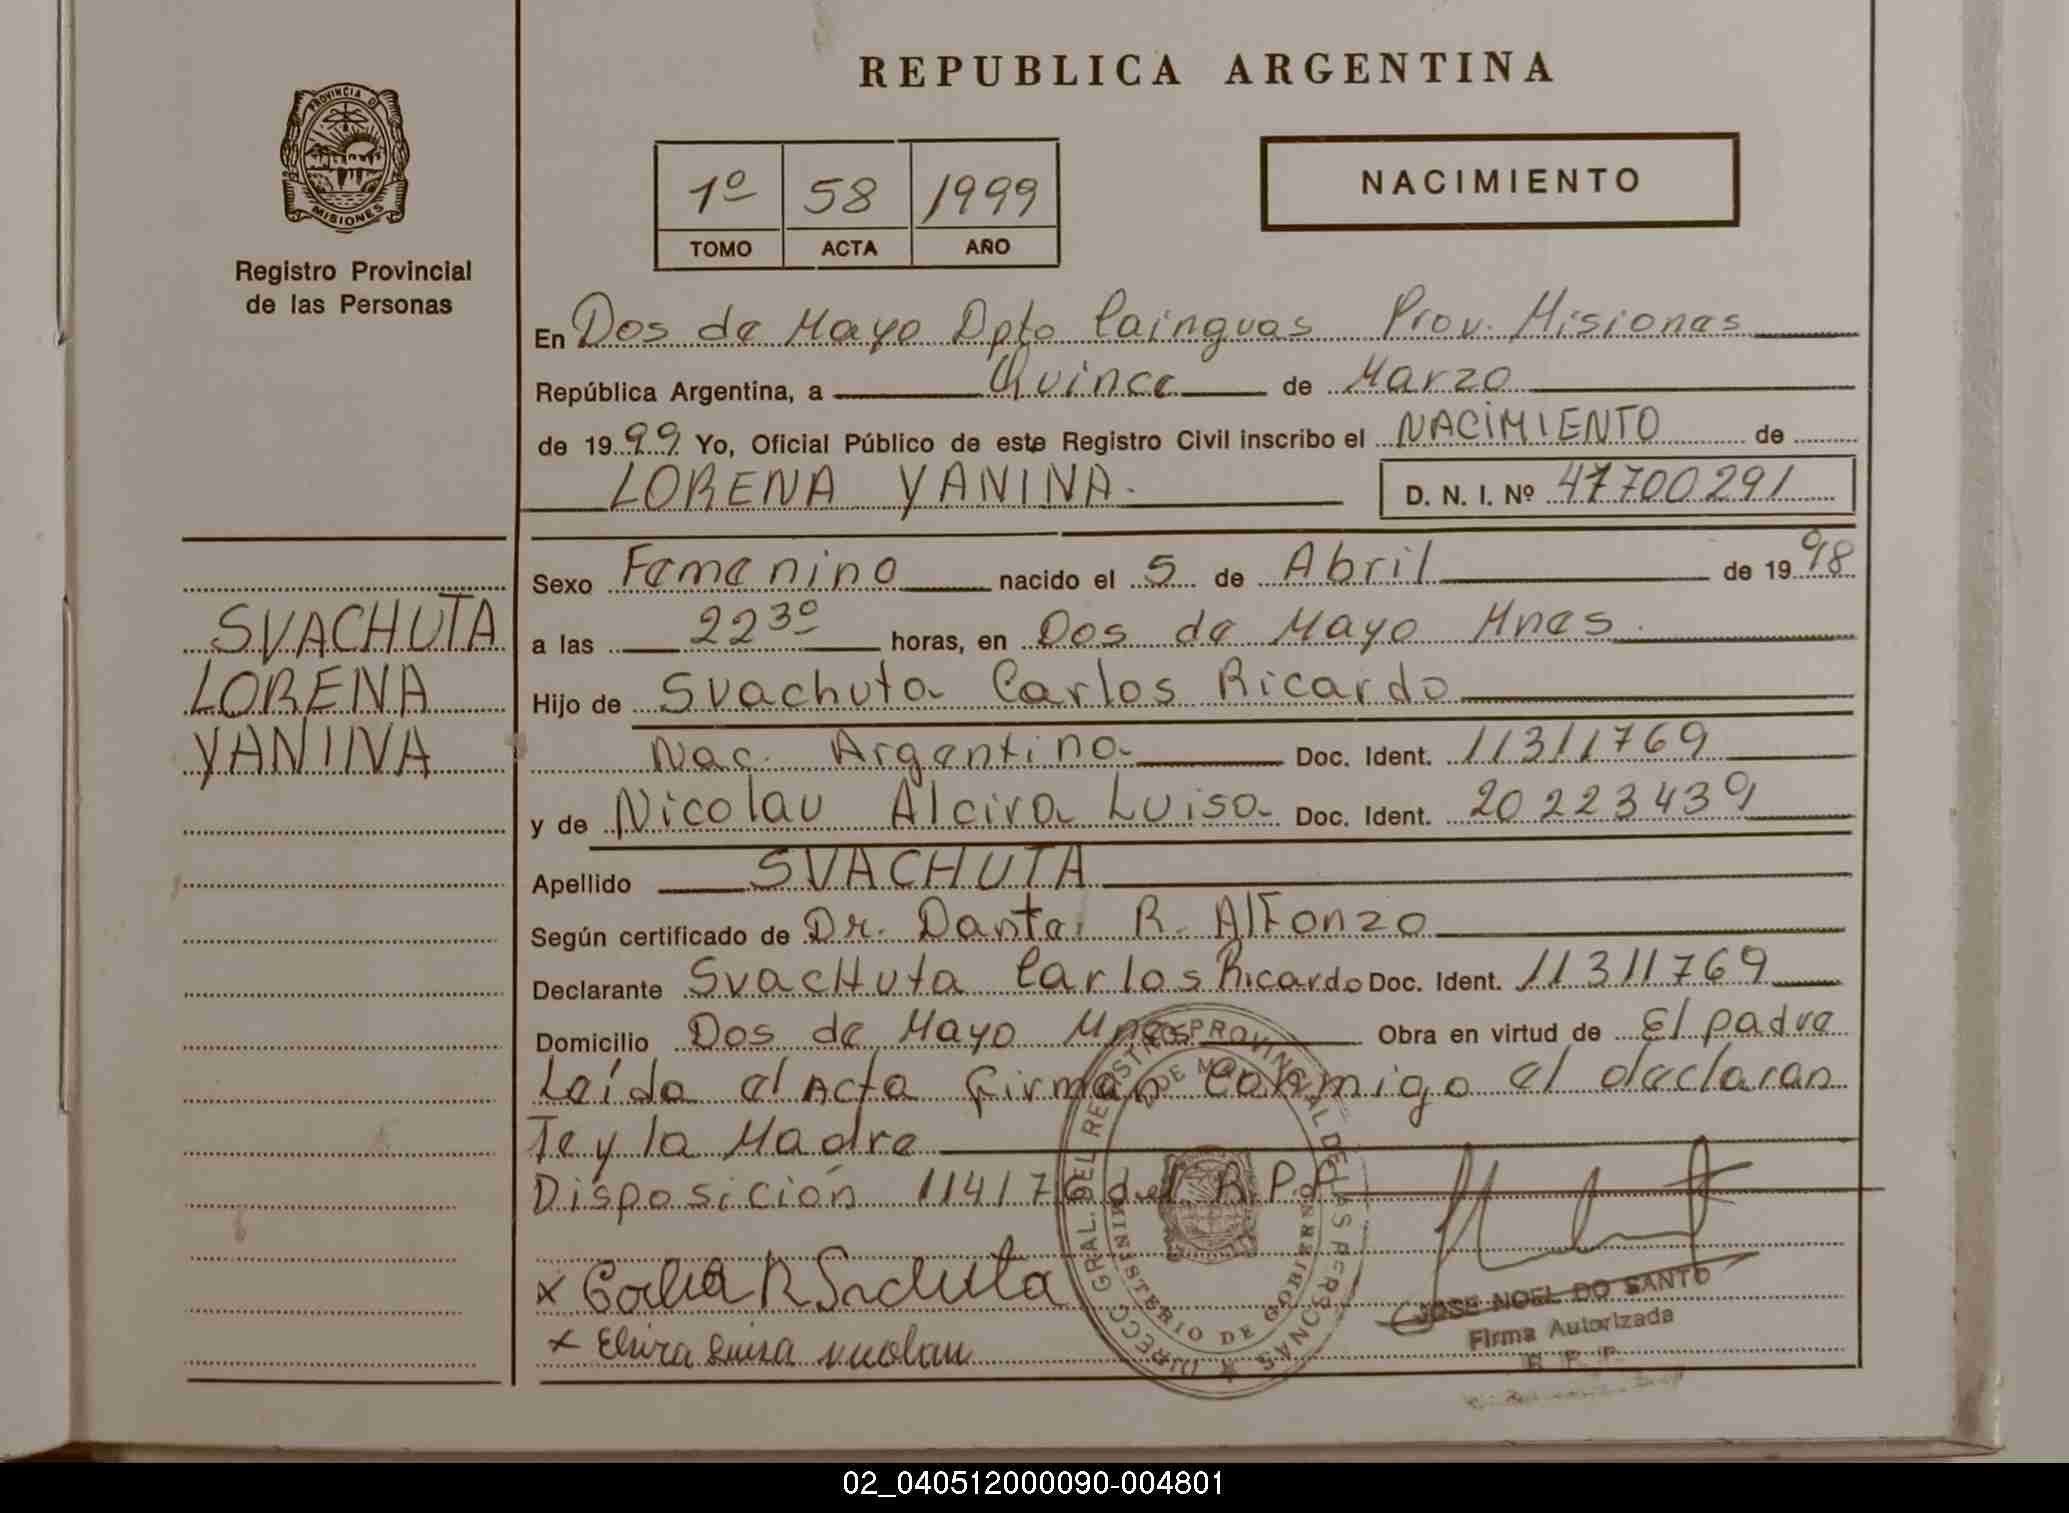 REPUBLICA ARGENTINA
PROVINCIA DE
MISIONES
Registro Provincial
de las Personas
1º 58 1999
TOMO ACTA AÑO
NACIMIENTO
En Dos de Mayo Dpto Cainguas Prov. Misiones
República Argentina, a Quince de Marzo
de 1999 Yo, Oficial Público de este Registro Civil inscribo el NACIMIENTO de
LORENA YANINA.
D. N. I. Nº 47700291
SVACHUTA
LORENA
YANINA
Sexo Femenino nacido el 5 de Abril de 1998
a las 22 30 horas, en Dos de Mayo Mnes.
Hijo de Svachuta Carlos Ricardo
Nac. Argentino Doc. Ident. 11311769
y de Nicolau Alcira Luisa Doc. Ident. 20223439
Apellido SVACHUTA
Según certificado de Dr. Dante R. Alfonzo
Declarante Svachuta Carlos Ricardo Doc. Ident. 11311769
Domicilio Dos de Mayo Mnes Obra en virtud de El padre
Leída el Acta firman conmigo el declaran
Te y la Madre
Disposición 114/76 del R.P.P
DIRECC GRAL. DEL REGISTRO PROVINCIAL DE LAS PERSONAS
MINISTERIO DE GOBIERNO
JOSE NOEL DO SANTO
Firma Autorizada
R. P. P.
02_040512000090-004801